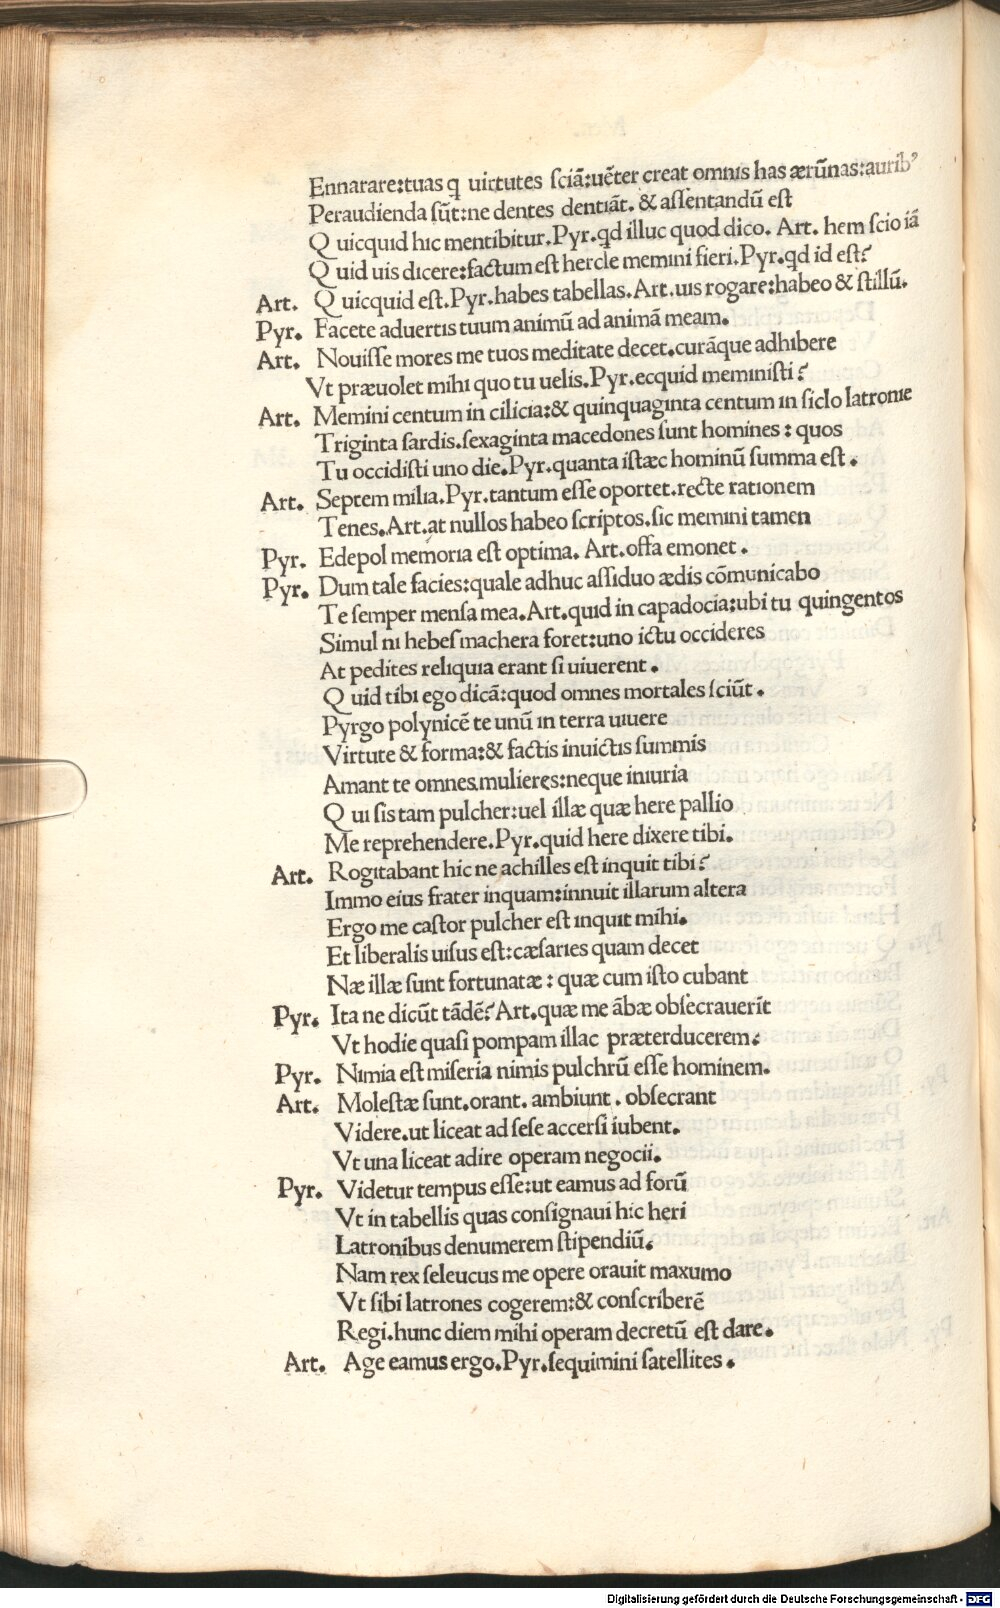 Ennarare:tuas q uirtutes sciā:uēter creat omnis has ærūnas:aurib⁹
Peraudienda sūt:ne dentes dentiāt. & assentandū est
Q uicquid hic mentibitur.Pyr.qd illuc quod dico. Art. hem scio iā
Q uid uis dicere:factum est hercle memini fieri.Pyr.qd id est?
Art. Q uicquid est.Pyr.habes tabellas.Art.uis rogare:habeo & stillū.
Pyr. Facete aduertis tuum animū ad animā meam.
Art. Nouisse mores me tuos meditate decet.curāque adhibere
Vt præuolet mihi quo tu uelis.Pyr.ecquid meministi?
Art. Memini centum in cilicia:& quinquaginta centum in siclo latronie
Triginta sardis.sexaginta macedones sunt homines : quos
Tu occidisti uno die.Pyr.quanta istæc hominū summa est.
Art. Septem milia.Pyr.tantum esse oportet.recte rationem
Tenes.Art.at nullos habeo scriptos.sic memini tamen
Pyr. Edepol memoria est optima. Art.offa emonet.
Pyr. Dum tale facies:quale adhuc assiduo ædis cōmunicabo
Te semper mensa mea.Art.quid in capadocia:ubi tu quingentos
Simul ni hebes machera foret:uno ictu occideres
At pedites reliquia erant si uiuerent.
Q uid tibi ego dicā:quod omnes mortales sciūt.
Pyrgo polynicē te unū in terra uiuere
Virtute & forma:& factis inuictis summis
Amant te omnes mulieres:neque iniuria
Q ui sis tam pulcher:uel illæ quæ here pallio
Me reprehendere.Pyr.quid here dixere tibi.
Art. Rogitabant hic ne achilles est inquit tibi?
Immo eius frater inquam:innuit illarum altera
Ergo me castor pulcher est inquit mihi.
Et liberalis uisus est:cæsaries quam decet
Næ illæ sunt fortunatæ : quæ cum isto cubant
Pyr. Ita ne dicūt tādē?Art.quæ me ābæ obsecrauerīt
Vt hodie quasi pompam illac præterducerem.
Pyr. Nimia est miseria nimis pulchrū esse hominem.
Art. Molestæ sunt.orant. ambiunt. obsecrant
Videre.ut liceat ad sese accersi iubent.
Vt una liceat adire operam negocii.
Pyr. Videtur tempus esse:ut eamus ad forū
Vt in tabellis quas consignaui hic heri
Latronibus denumerem stipendiū.
Nam rex seleucus me opere orauit maxumo
Vt sibi latrones cogerem:& conscriberē
Regi.hunc diem mihi operam decretū est dare.
Art. Age eamus ergo.Pyr.sequimini satellites.
Digitalisierung gefördert durch die Deutsche Forschungsgemeinschaft - DFG